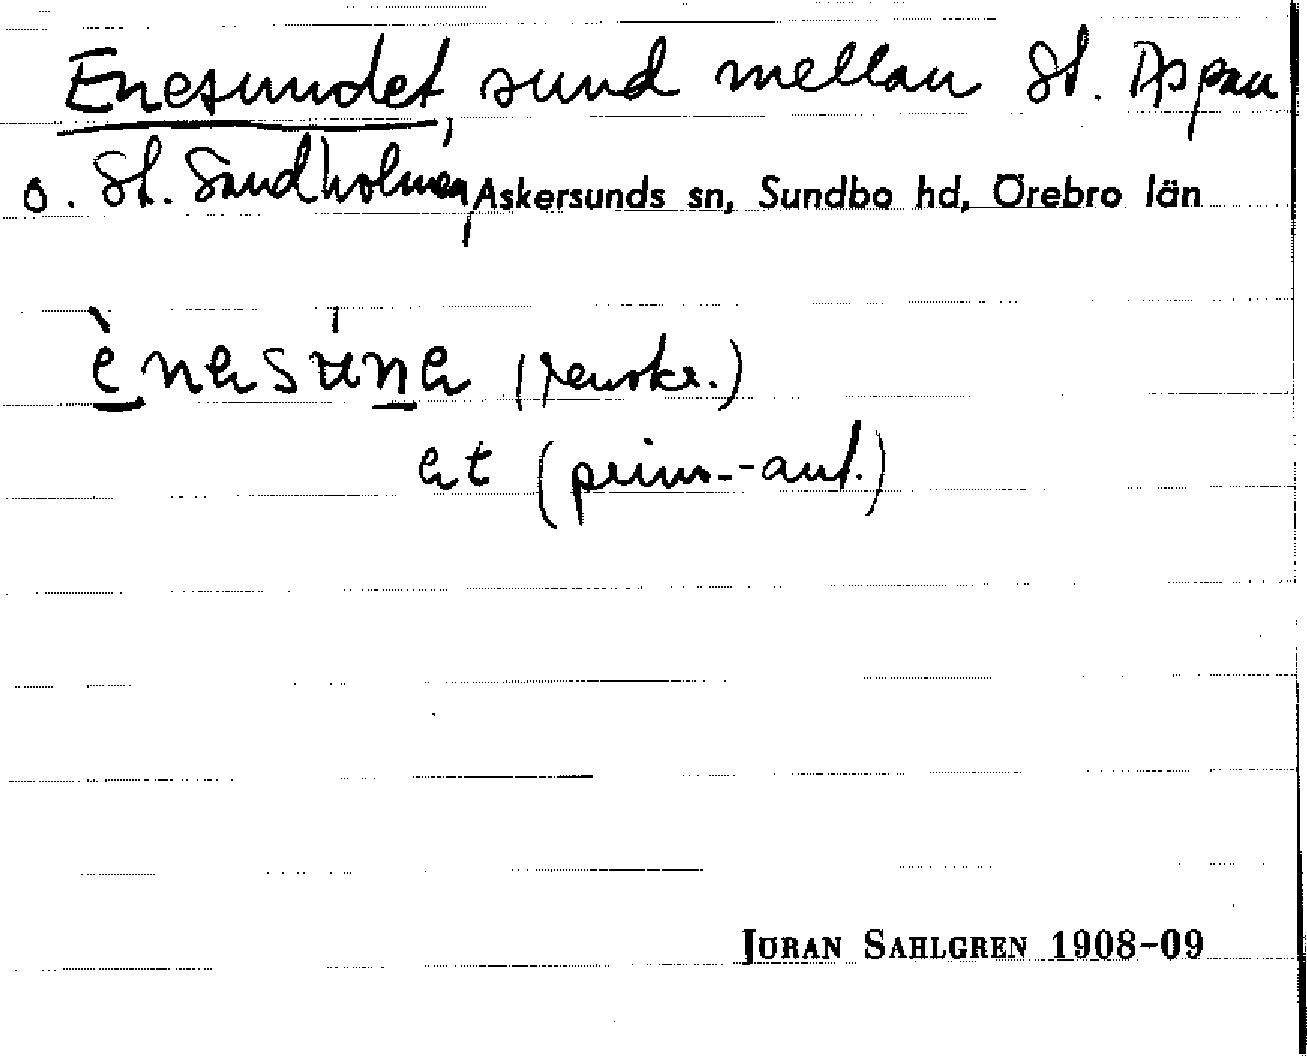 Enesundet, sund mellan St. Aspan
o. St. Sandholmen, Askersunds sn, Sundbo hd, Örebro län
ènesúne (renskr.)
et (prim.-ant.)
JÖRAN SAHLGREN 1908-09